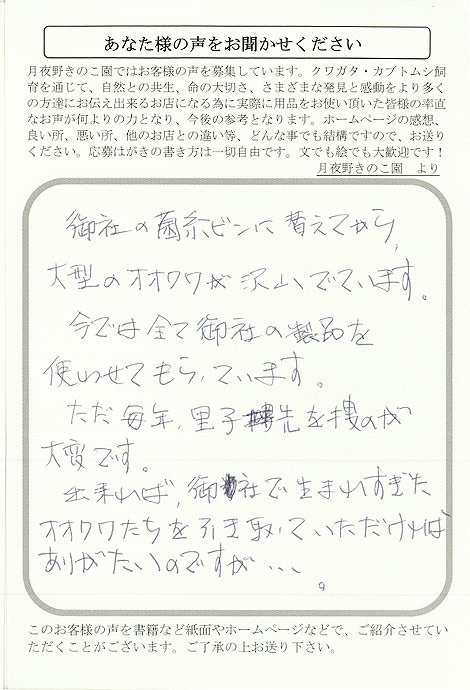 あなた様の声をお聞かせください
月夜野きのこ園ではお客様の声を募集しています。クワガタ・カブトムシ飼
育を通じて、自然との共生、命の大切さ、さまざまな発見と感動をより多く
の方達にお伝え出来るお店になる為に実際に用品をお使い頂いた皆様の率直
なお声が何よりの力となり、今後の参考となります。ホームページの感想、
良い所、悪い所、他のお店との違い等、どんな事でも結構ですので、お送り
ください。応募はがきの書き方は一切自由です。文でも絵でも大歓迎です！
月夜野きのこ園　より
御社の菌糸ビンに替えてから、
大型のオオクワが沢山でています。
今では全て御社の製品を
使わせてもらっています。
ただ毎年、里子先を捜のが
大変です。
出来れば、御社で生まれすぎた
オオクワたちを引き取っていただければ
ありがたいのですが、、、。
このお客様の声を書籍など紙面やホームページなどで、ご紹介させてい
ただくことがございます。ご了承の上お送り下さい。